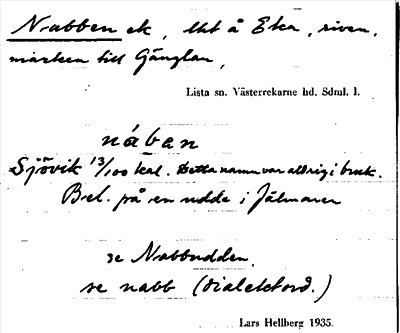 Nabben ek, lht å Eka, riven,
marken till Gänglan,
Lista sn. Västerrekarne hd. Sdml. l.
nában
Sjövik 13/100 kal. Detta namn var aldrig i bruk.
Bel. på en udde i Jälmaren
se Nabbudden.
se nabb (dialektord.)
Lars Hellberg 1935.